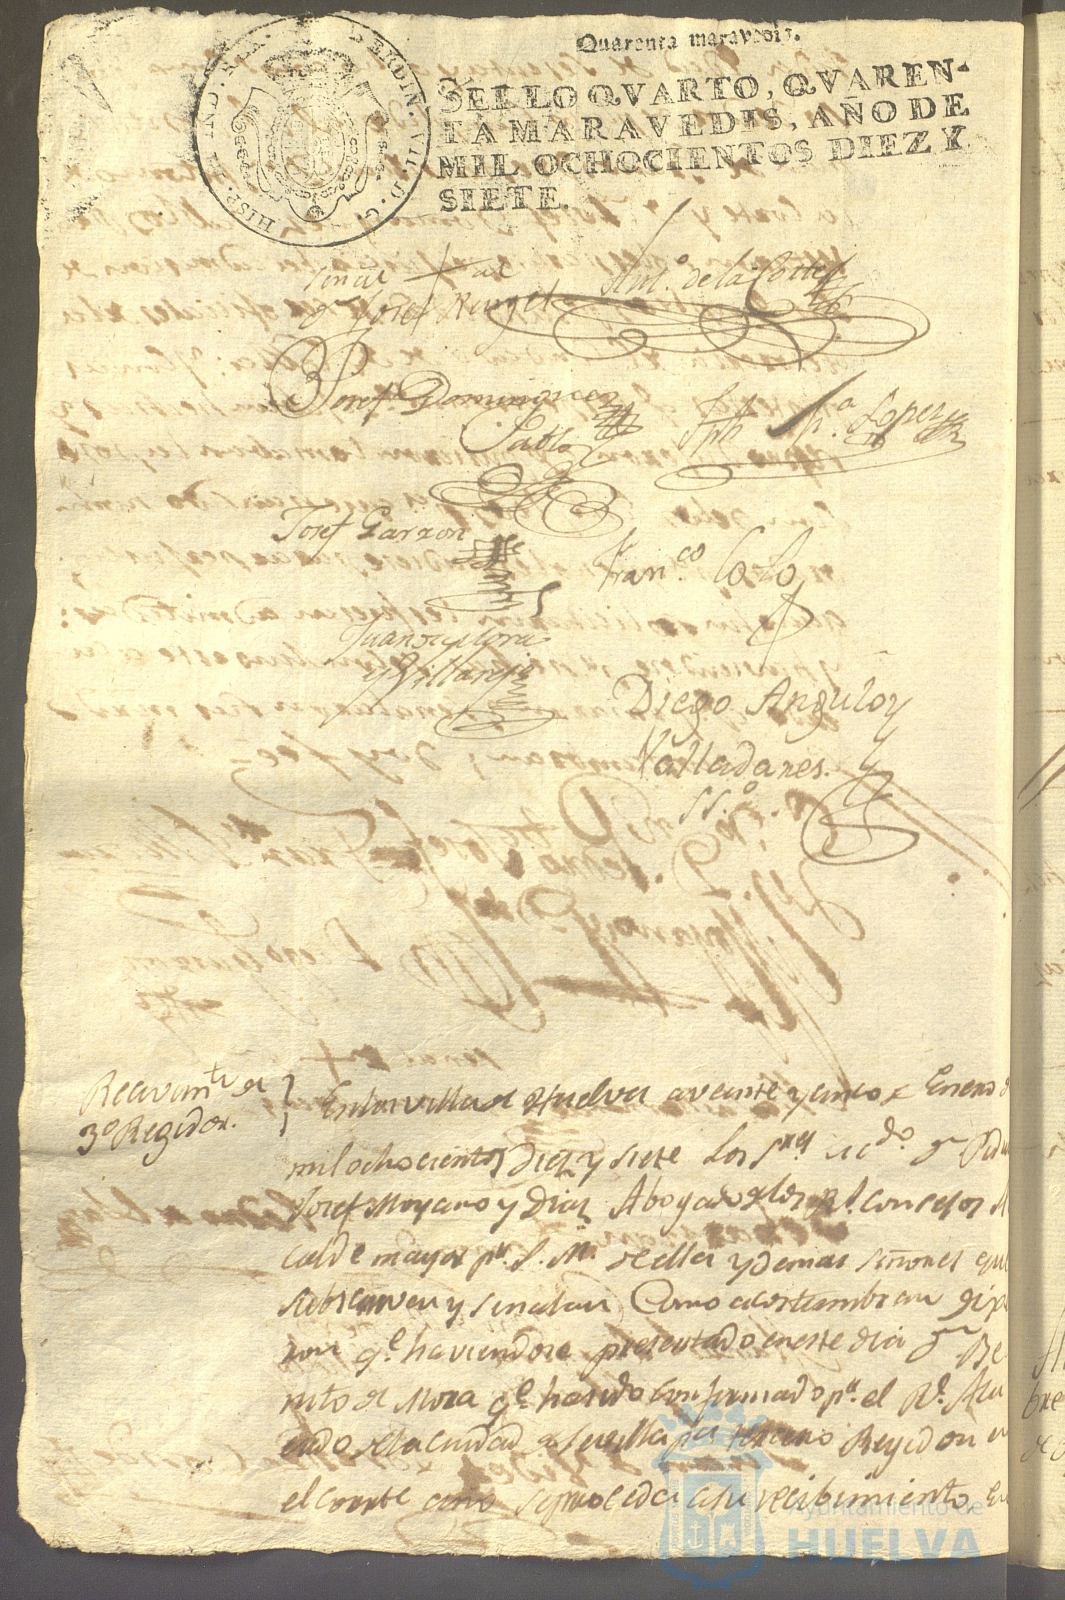 Quarenta maravedis.
SELLO QVARTO, QVAREN-
TA MARAVEDIS, AÑO DE
MIL OCHOCIENTOS DIEZ Y
SIETE.
HISP. ET IND. REX. FERDIN. VII. D. G.
Señal + de
Josef Rangel
Ant.º de la Corte
Josef Dominguez
Pablo
Jph M.ª Lopez
Josef Garzon
Fran.co Colo
Juan de Mora
y Villarejo
Diego Angulo y
Valladares.
SS.º
Recivim.to de
3º Regidor.
En la villa de Huelva a veinte y cinco de Enero d
mil ochocientos diez y siete los S.res Lic.do D.n Pedro
Josef Moyano y Diaz Abogado de los R.s Consejos Al
calde mayor p.r S. M. de ella y demas señores que
subscriven y señalan como acostumbran dixe
ron q.e haviendose presentado en este dia D.n Be
nito de Mora q.e ha sido confirmado p.r el R.l Acu
erdo de la ciudad de Sevilla p.r tercero Regidor en
el corrte. año se proceda a su recibimiento. En
Ayuntamiento de
HUELVA